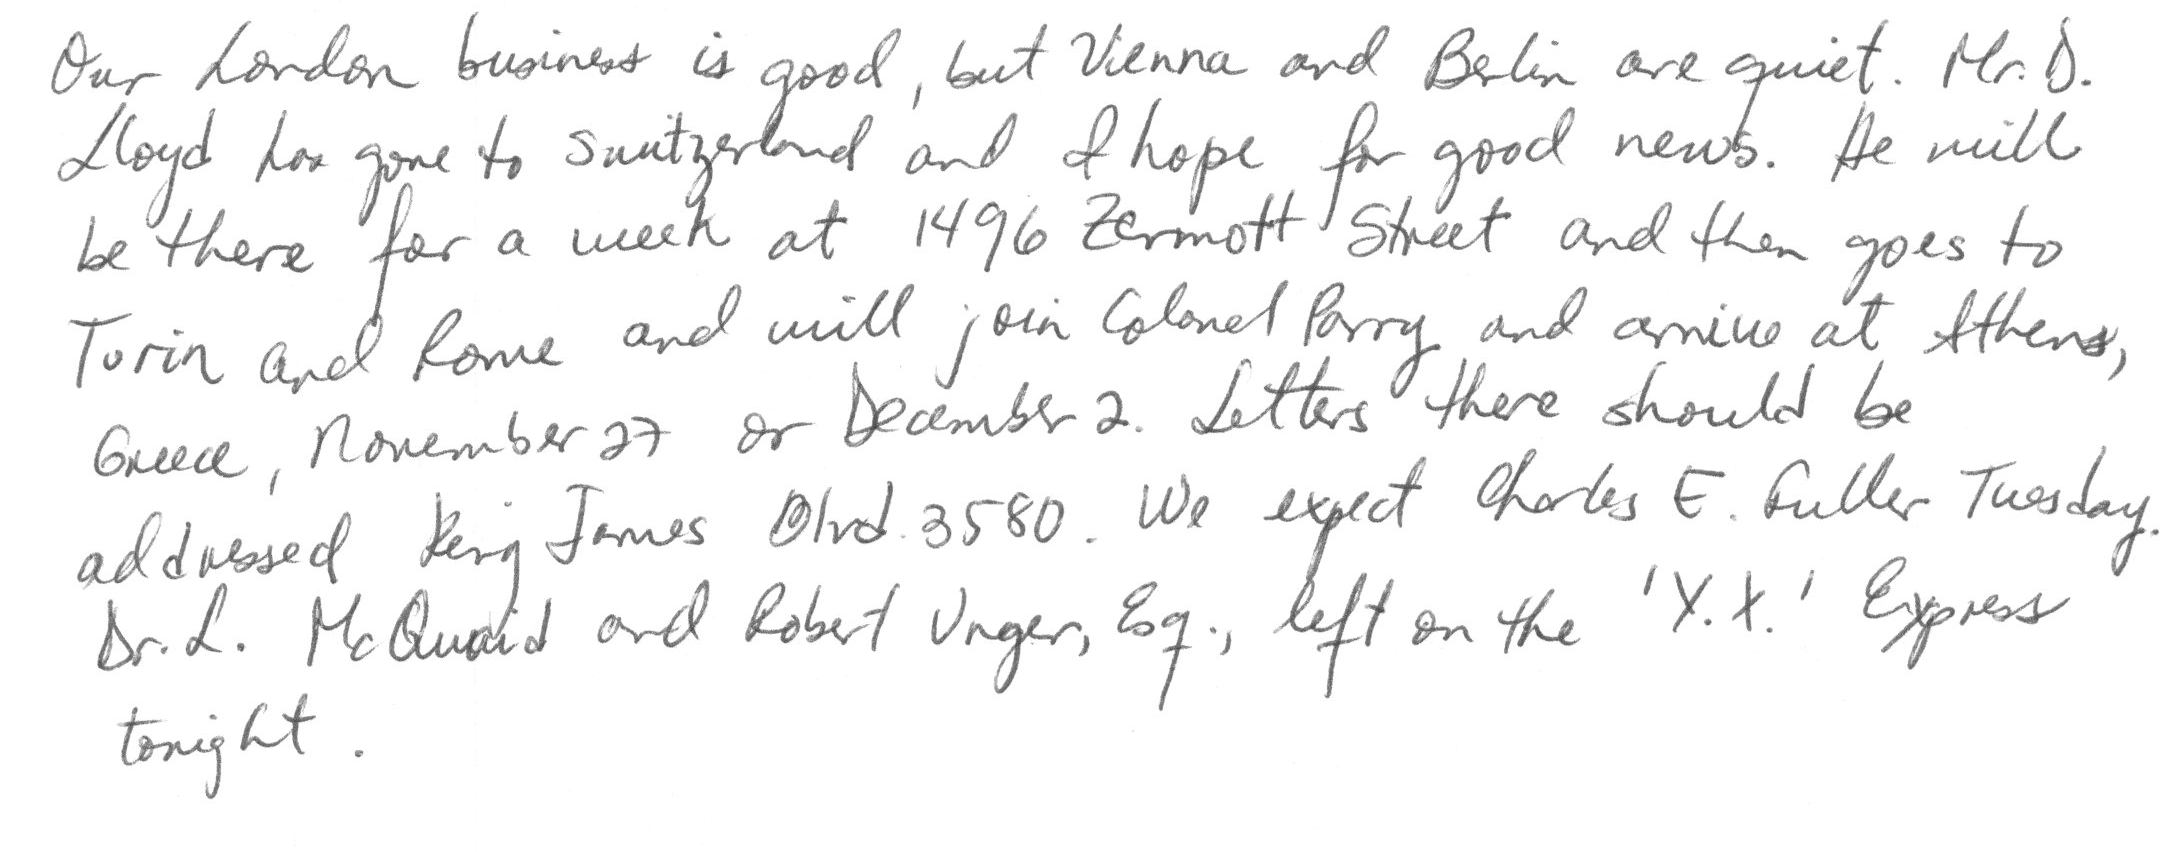 Our London business is good, but Vienna and Berlin are quiet. Mr. D.
Lloyd has gone to Switzerland and I hope for good news. He will
be there for a week at 1496 Zermott Street and then goes to
Turin and Rome and will join Colonel Parry and arrive at Athens,
Greece, November 27 or December 2. Letters there should be
addressed King James Blvd. 3580. We expect Charles E. Fuller Tuesday.
Dr. L. McQuaid and Robert Unger, Esq., left on the 'Y.X.' Express
tonight.